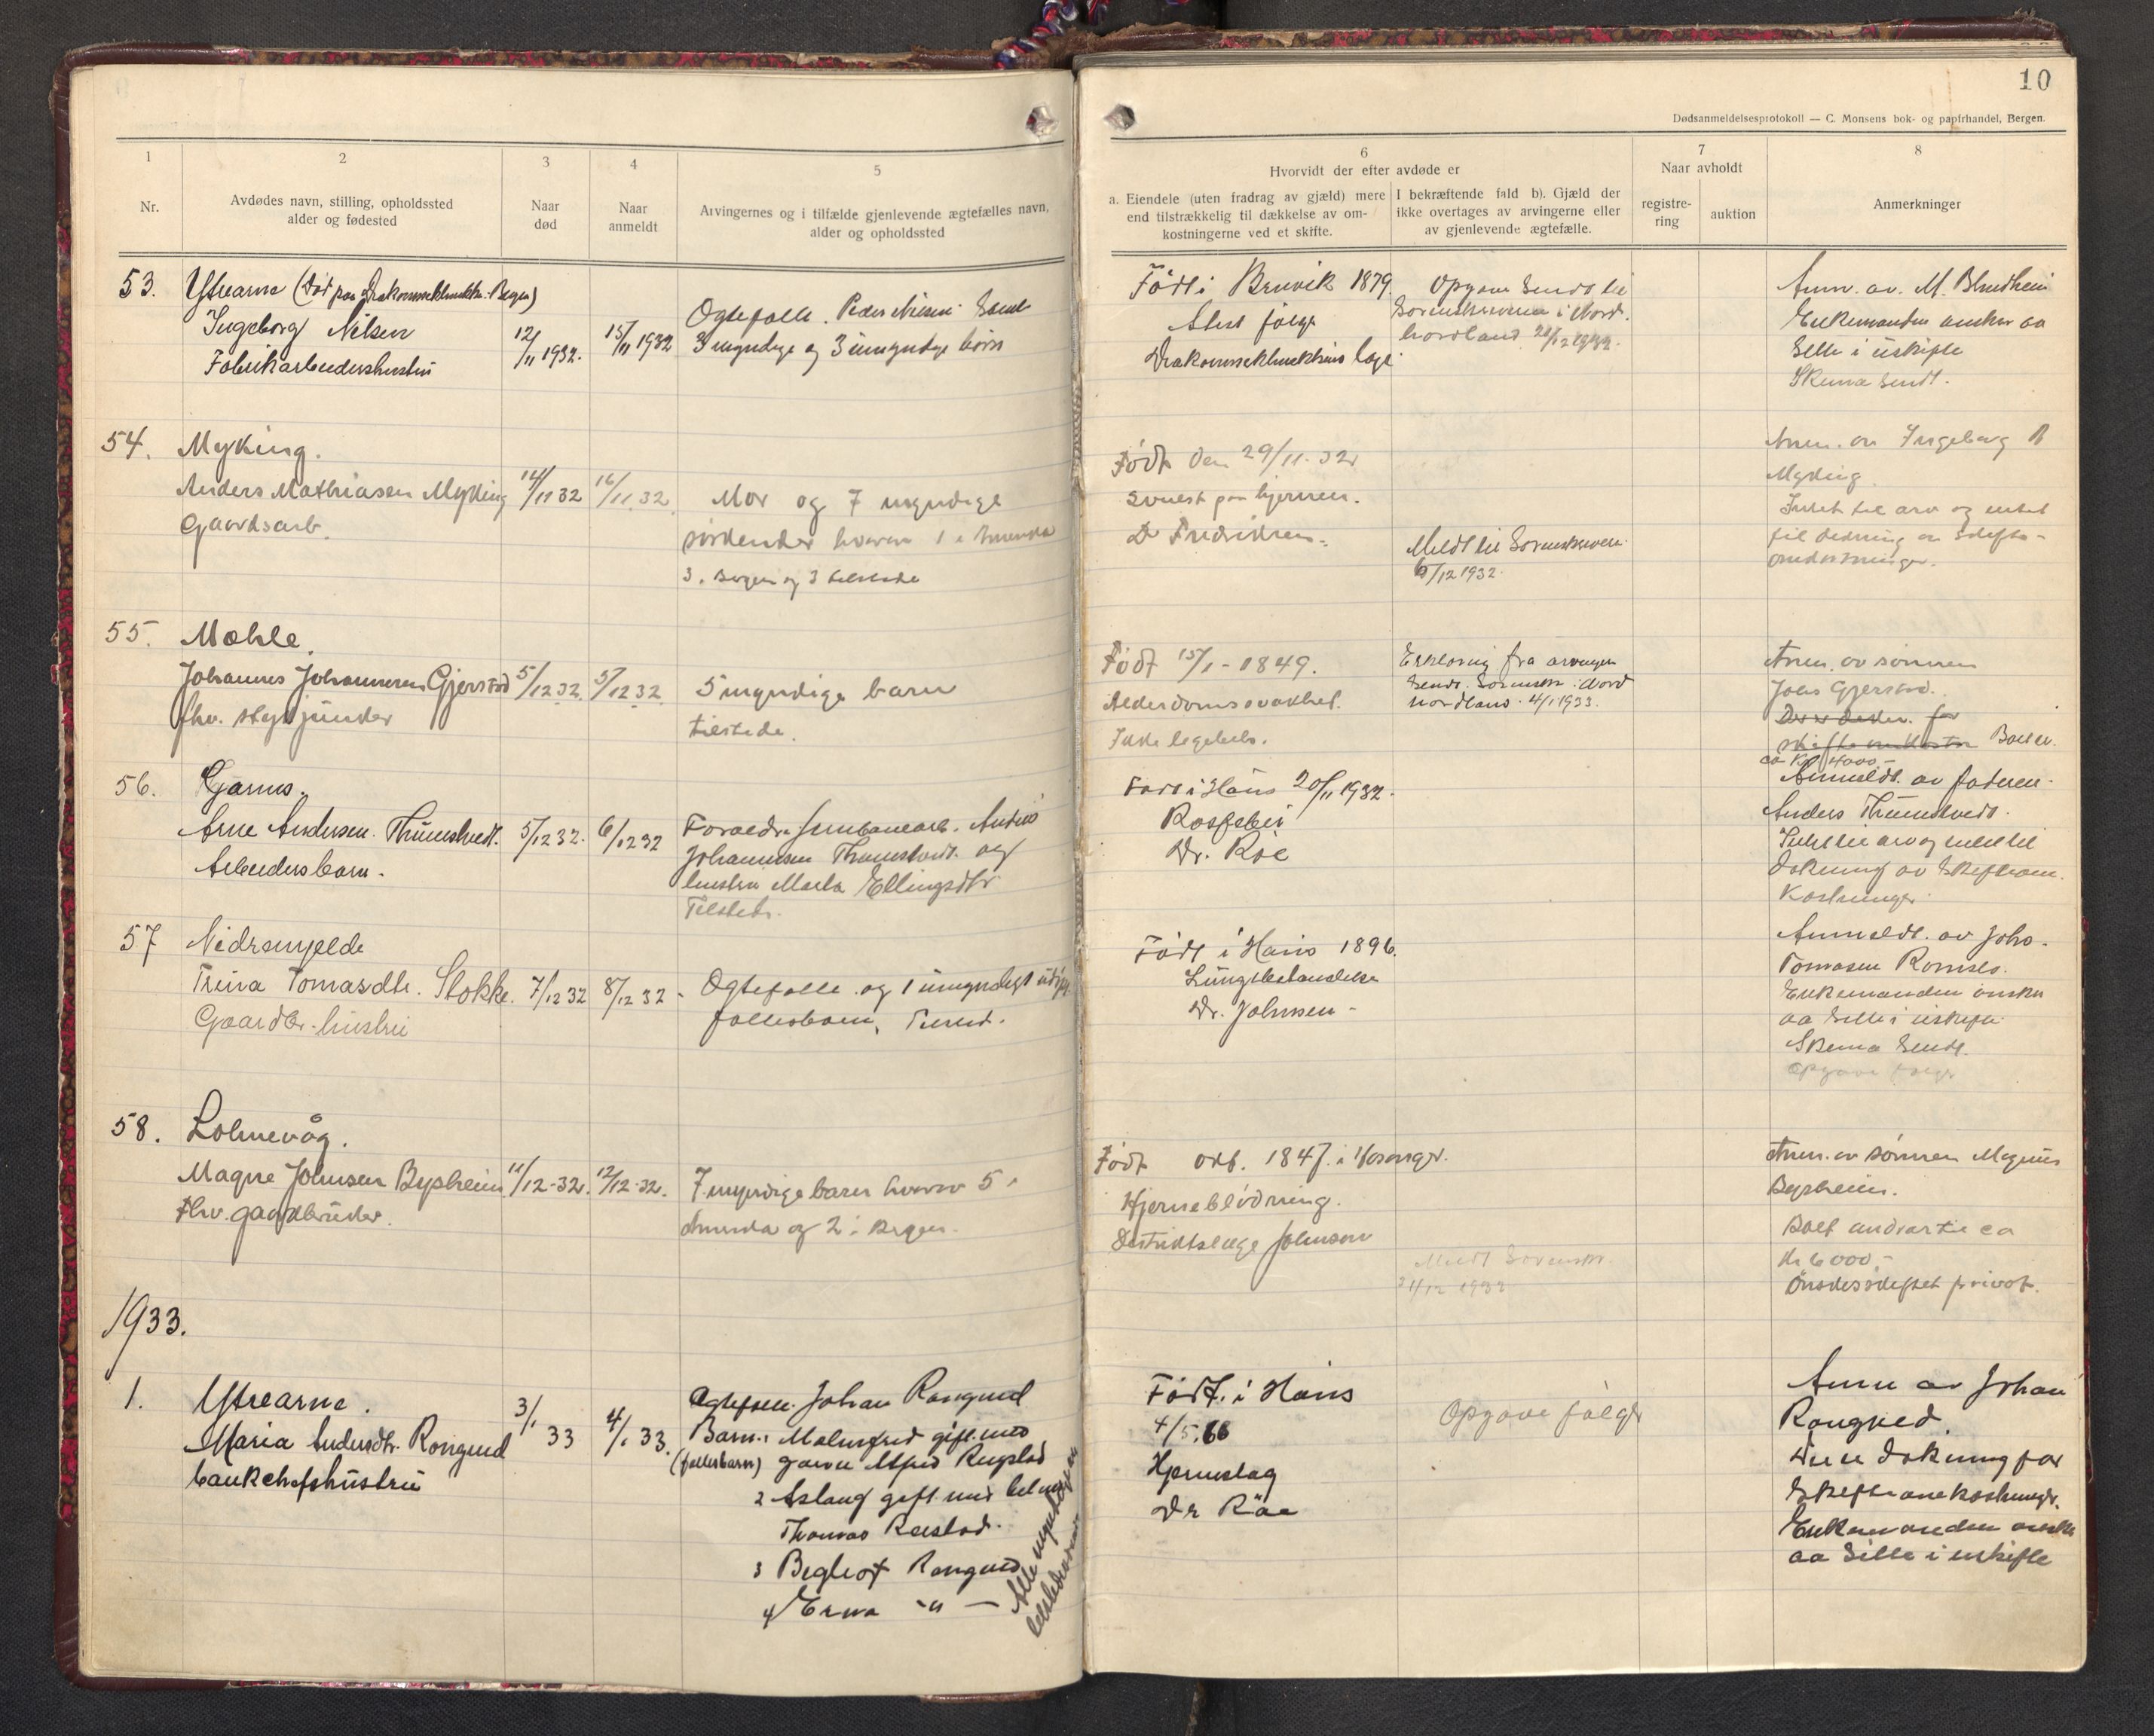 10
Dødsanmeldelsesprotokoll — C. Monsens bok- og papirhandel, Bergen.
1
Nr.
2
Avdødes navn, stilling, opholdssted
alder og fødested
3
Naar
død
4
Naar
anmeldt
5
Arvingernes og i tilfælde gjenlevende ægtefælles navn,
alder og opholdssted
6
Hvorvidt der efter avdøde er
a. Eiendele (uten fradrag av gjæld) mere
end tilstrækkelig til dækkelse av om-
kostningerne ved et skifte.
I bekræftende fald b). Gjæld der
ikke overtages av arvingerne eller
av gjenlevende ægtefælle.
7
Naar avholdt
registre-
ring
auktion
8
Anmerkninger
53.
Ytrearne (Død paa Bergen)
Ingeborg Nilsen
Fabrikarbeidershustru
12/11 1932.
15/11 1932
Ogtefolle. Peder Nilsen samt
3 myndige og 3 umyndige børn
Født i Bruvik 1879.
Attest følge
læge
Opgave sendt til
Sorenskriveren i Nord.
hordland
Anm. av. M. Blindheim
Enkemanden ønsker aa
sitte i uskifte
Skema sendt.
54.
Myking.
Anders Mathiasen Myking
Gaardsarb.
14/11 32
16/11 32.
Mor og 7 myndige
søskender hvorav 1 i Amerika
3 i Bergen og 3 tilstede
Født den 29/11-32
svulst paa hjernen.
Dr Fredriksen.
Meldt til Sorenskriveren
/12 1932.
Anm. av Ingeborg
Myking.
Intet til arv og intet
til dekning av skifte-
omkostninger.
55.
Mæhle.
Johannes Johannesen Gjerstad
fhv. skysjunder
5/12 32.
5/12 32.
5 myndige barn
tilstede.
Født 15/1-1849.
Alderdomssvakhet.
Ikke legehels.
Erklæring fra arvingen
sendt Sorenskr. i Nord
hordland. 4/1 1933.
Anm. av sønnen
Johs Gjerstad.
Det er dækn. for
Boet er.
ca Kr 4000,-
56.
Garnes.
Arne Andersen. Thunestvedt.
Arbeidersbarn.
5/12 32.
6/12 32
Foreldre Jernbanearb. Anders
Johannesen Thunestvedt. og
hustru Marta Ellingsdtr
Tilstede.
Født i Haus 20/11 1932.
Dr. Roe
Anmeldt. av faderen
Anders Thunestvedt.
Intet til arv og intet til
dekning av skifteom.
kostninger
57
Nedremjelde
Trina Tomasdtr. Stokke.
Gaardbr. hustru
7/12 32
8/12 32
Ogtefolle og 1 umyndigt
fellesbarn, Tilsted.
Født i Haus 1896.
Lungebetendelse
Dr. Johnsen
Anmeldt. av Johs.
Tomasen Romslo.
Enkemanden ønsker
aa sitte i uskifte
Skema sendt.
Opgave følge
58.
Lonevåg.
Magne Johnsen Bysheim
Fhv. gaardbruker.
11/12-32.
12/12-32.
7 myndige barn hvorav 5 i
Amerika og 2 i Bergen.
Født okt. 1847 i Hosanger.
Hjerneblødning.
Distriktslæge Johnsen
Meldt Sorenskr.
/12 1932
Anm. av sønnen Magnus
Bysheim.
Boet andrar til ca
kr 6000,-
Ønskes skiftet privat.
1933.
1.
Ytrearne.
Maria Andersdtr. Rongved
bankchefshustru
3/1 33
4/1 33.
Ogtefolle. Johan Rongved
Barn: 1 Malmfrid gift med
(fellesbarn)
2 Aslaug gift med
Thomas
3 Bergliot Rongved
4 Erna -"-
Alle myndige
Født. i Haus
4/5. 66
Hjerneslag
Dr Räe
Opgave følger
Anm av Johan
Rongved.
Der er dekning for
Skifteomkostninger.
Enkemanden ønsker
aa sitte i uskifte